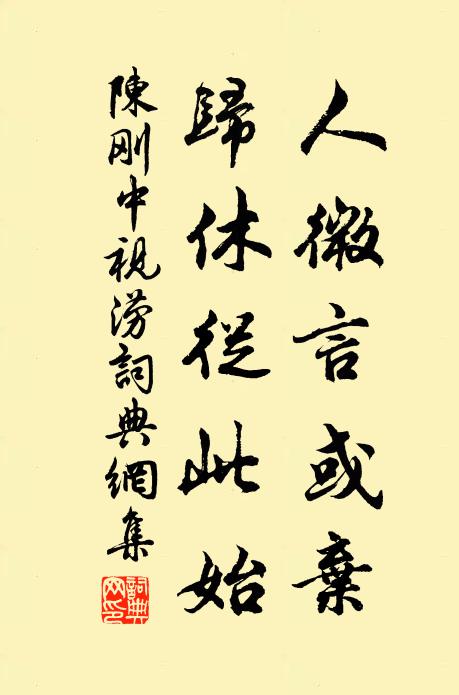 人微言或棄
歸休從此始
陳剛中視澇詞典網集
詞典網印